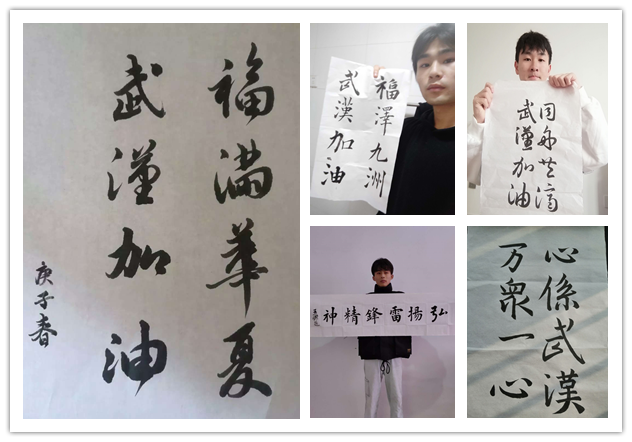 福滿華夏
武漢加油
庚子春
福澤九洲
武漢加油
同舟共濟
武漢加油
弘揚雷鋒精神
心係武漢
万衆一心